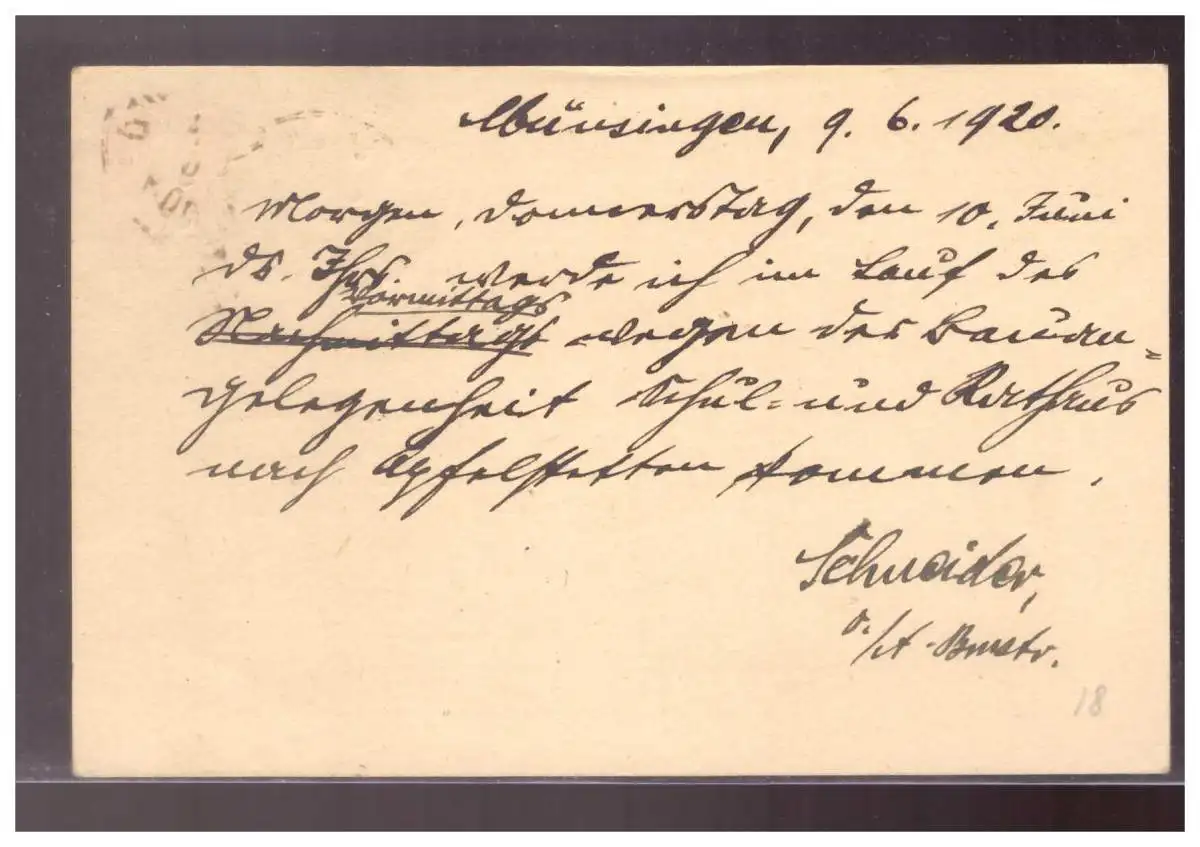 Münsingen, 9. 6. 1920.
Morgen, Donnerstag, den 10. Juni
ds. Jhrs. werde ich im Lauf des
Vormittags
Nachmittags wegen der Bauan-
gelegenheit Schul- und Rathaus
nach Apfelstetten kommen.
Schneider,
Bmstr.
18